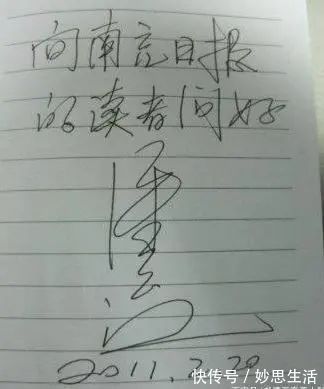 向南充日报
的读者问好
2011.7.20
快传号/妙思生活